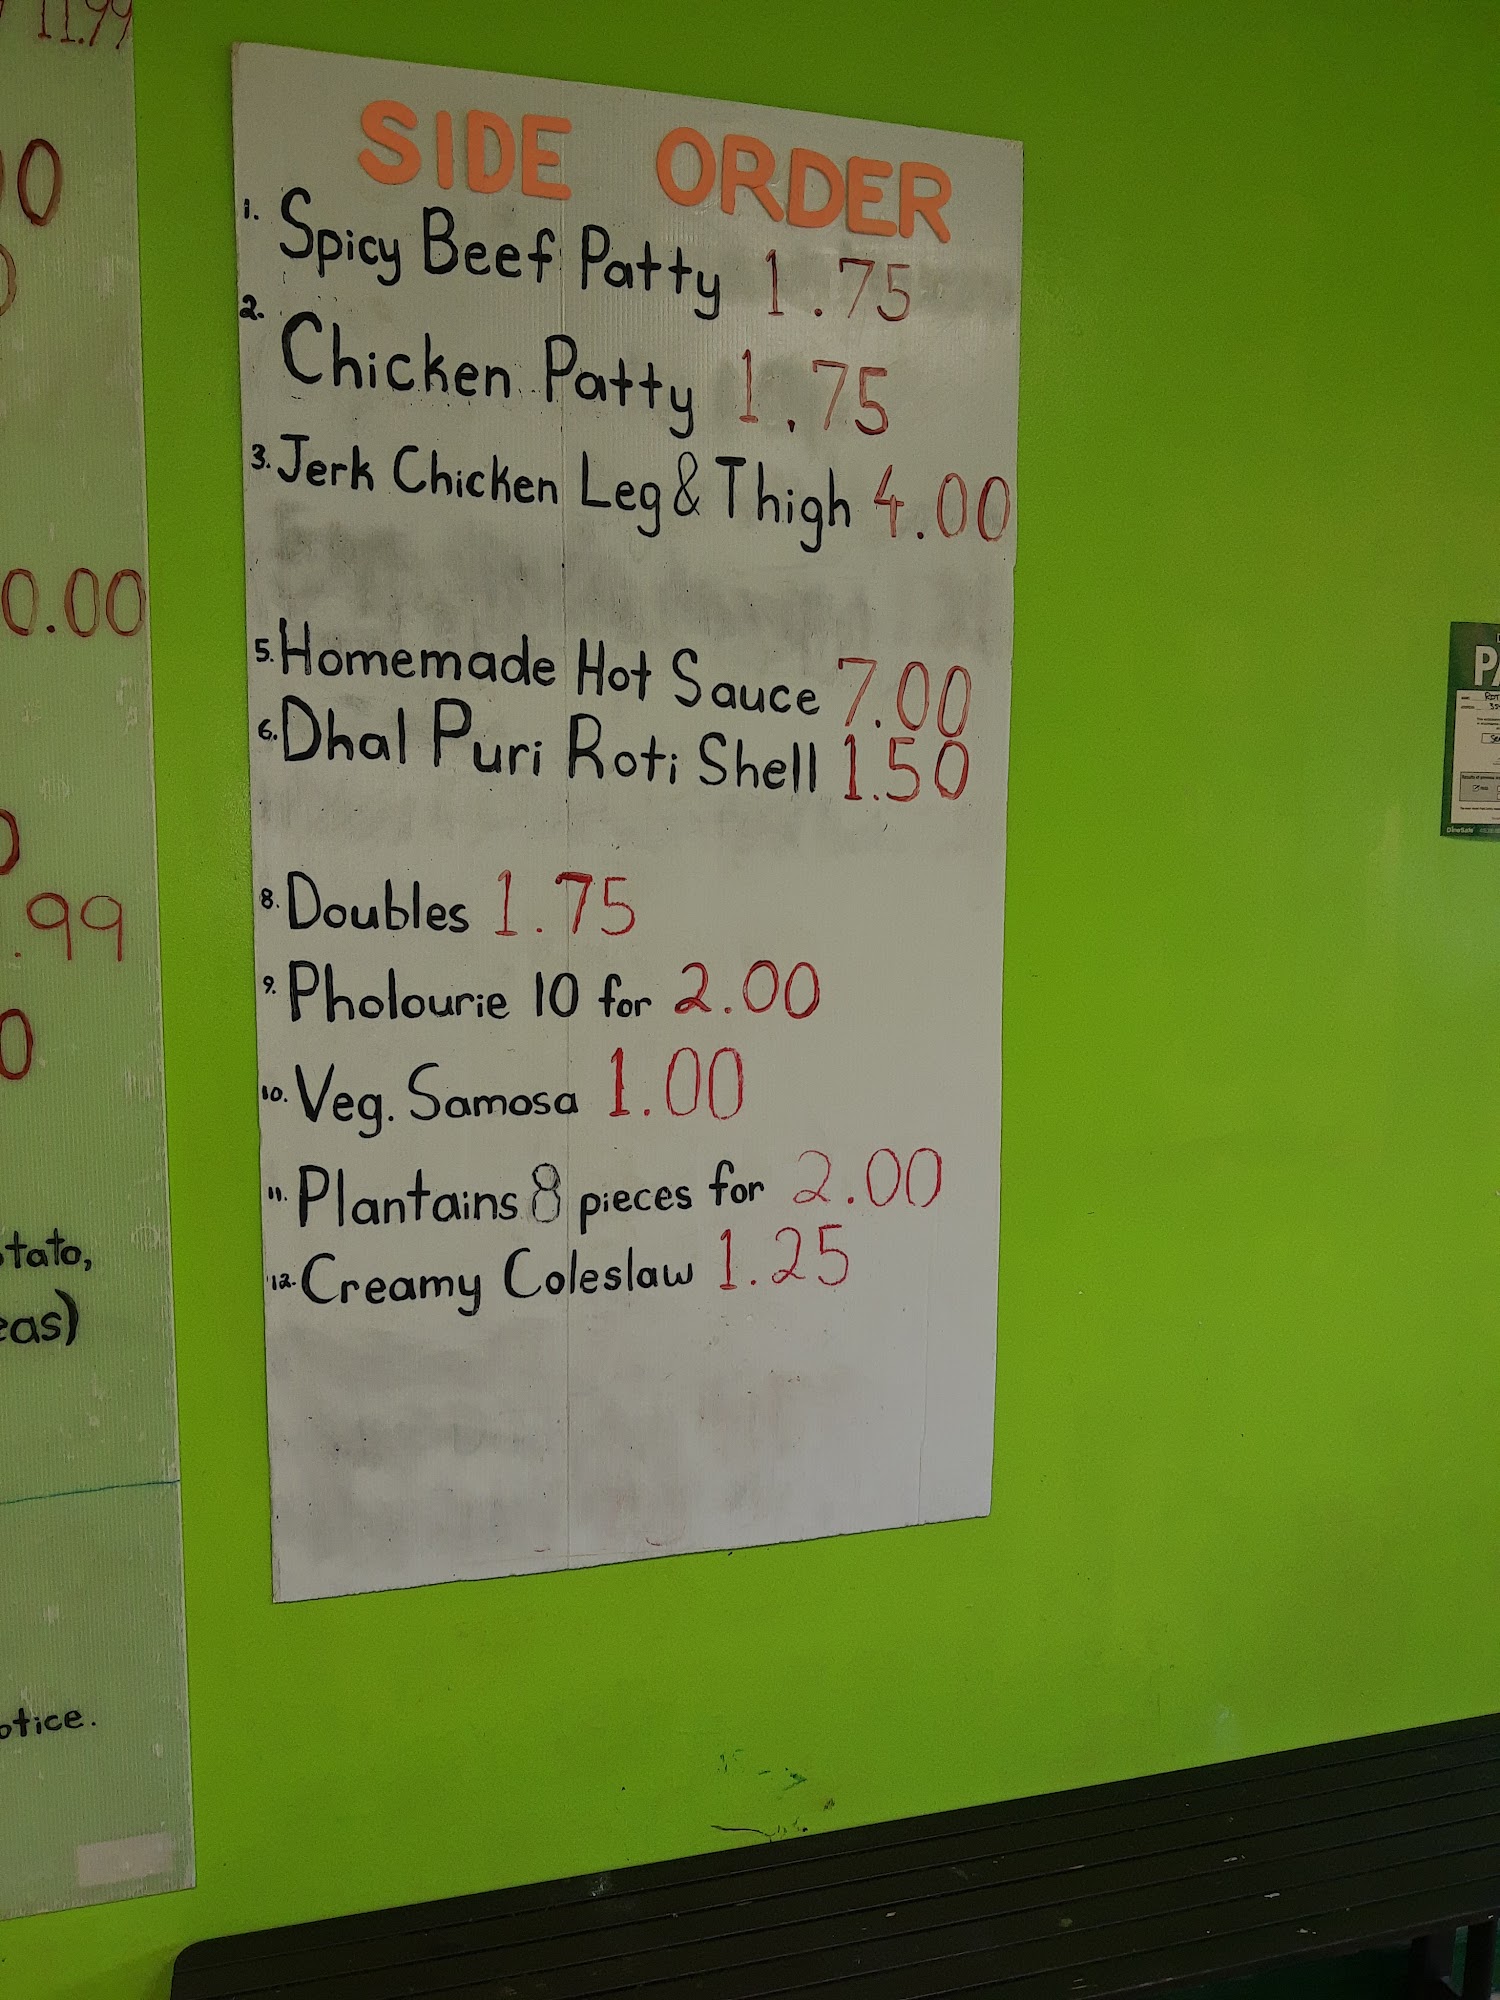 11.99
0.00
.99
tato,
eas)
otice.
SIDE ORDER
1. Spicy Beef Patty 1.75
2. Chicken Patty 1.75
3. Jerk Chicken Leg & Thigh 4.00
5. Homemade Hot Sauce 7.00
6. Dhal Puri Roti Shell 1.50
8. Doubles 1.75
9. Pholourie 10 for 2.00
10. Veg. Samosa 1.00
11. Plantains 8 pieces for 2.00
12. Creamy Coleslaw 1.25
DineSafe